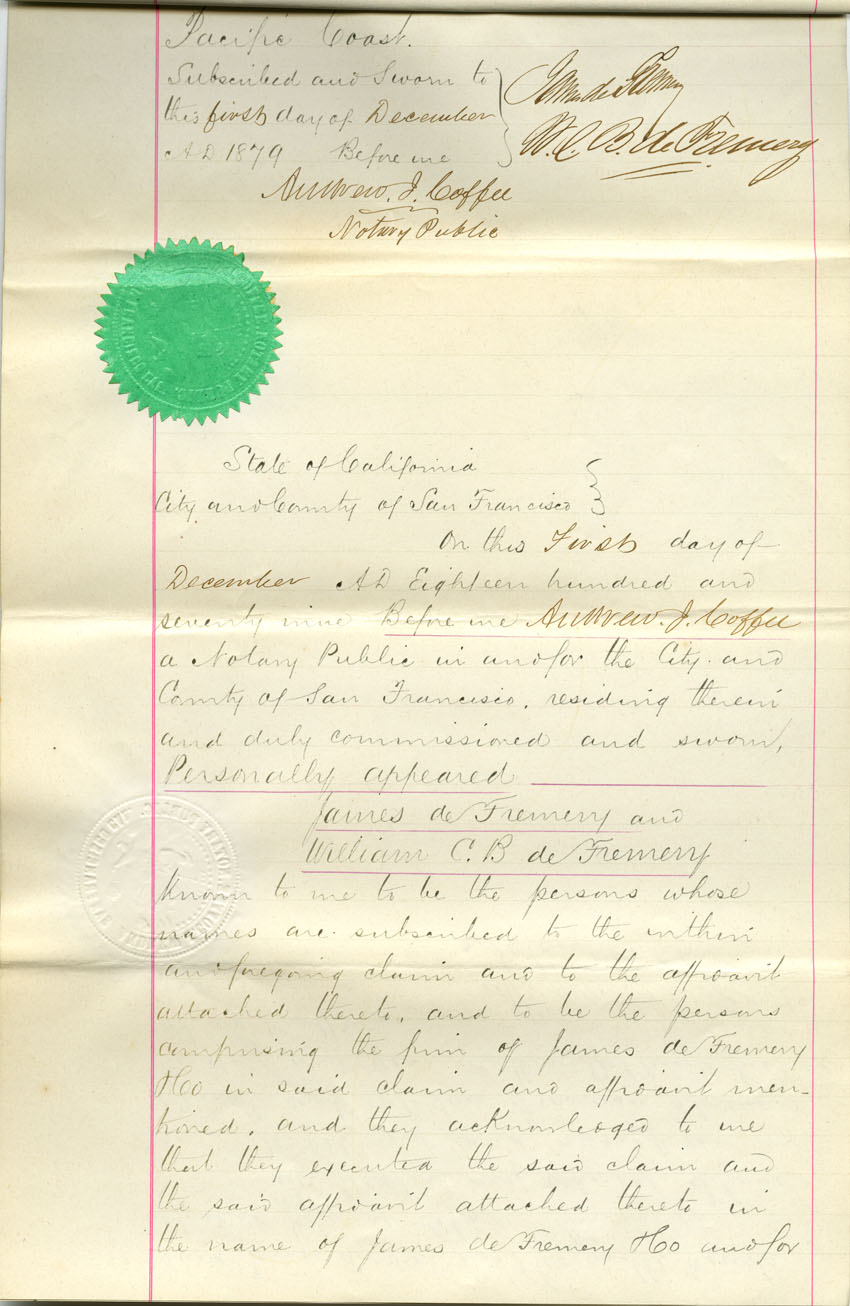 Pacific Coast.
Subscribed and Sworn to
this first day of December
AD 1879 Before me
James de Fremery
W. C. B. de Fremery
Andrew. J. Coffee
Notary Public
State of California
City and County of San Francisco
On this First day of
December AD Eighteen hundred and
seventy nine Before me Andrew. J. Coffee
a Notary Public in and for the City and
County of San Francisco, residing therein
and duly commissioned and sworn,
Personally appeared
James de Fremery and
William C. B de Fremery
Known to me to be the persons whose
names are subscribed to the within
and foregoing claim and to the affidavit
attached thereto, and to be the persons
comprising the firm of James de Fremery
&Co in said claim and affidavit men-
tioned, and they acknowledged to me
that they executed the said claim and
the said affidavit attached thereto in
the name of James de Fremery &Co and for